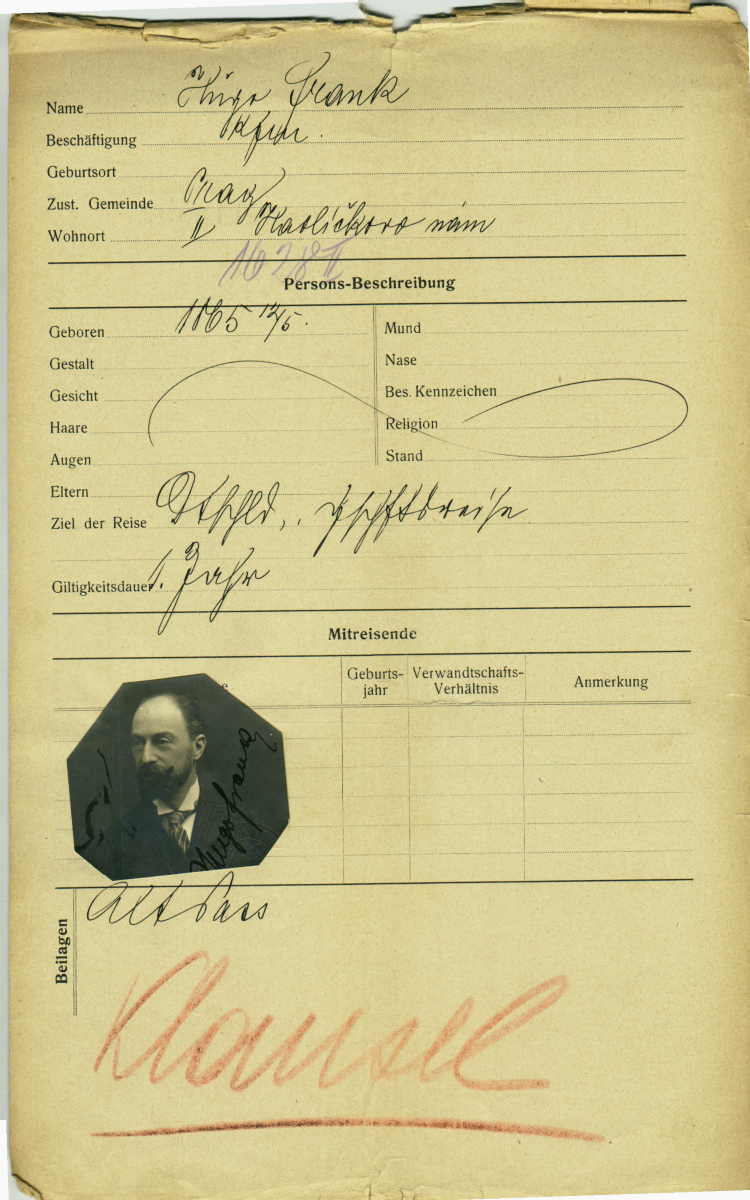 Name Hugo Frank
Beschäftigung Kfm.
Geburtsort
Zust. Gemeinde Prag
Wohnort II Havlíčkovo nám
1628 II
Persons-Beschreibung
Geboren 1865 12/5.
Mund
Gestalt
Nase
Gesicht
Bes. Kennzeichen
Haare
Religion
Augen
Stand
Eltern
Ziel der Reise Dtschld., Gschftsreise
Giltigkeitsdauer 1. Jahr
Mitreisende
Geburts-
jahr
Verwandtschafts-
Verhältnis
Anmerkung
Hugo Frank
Beilagen
Alt Pass
Klausel